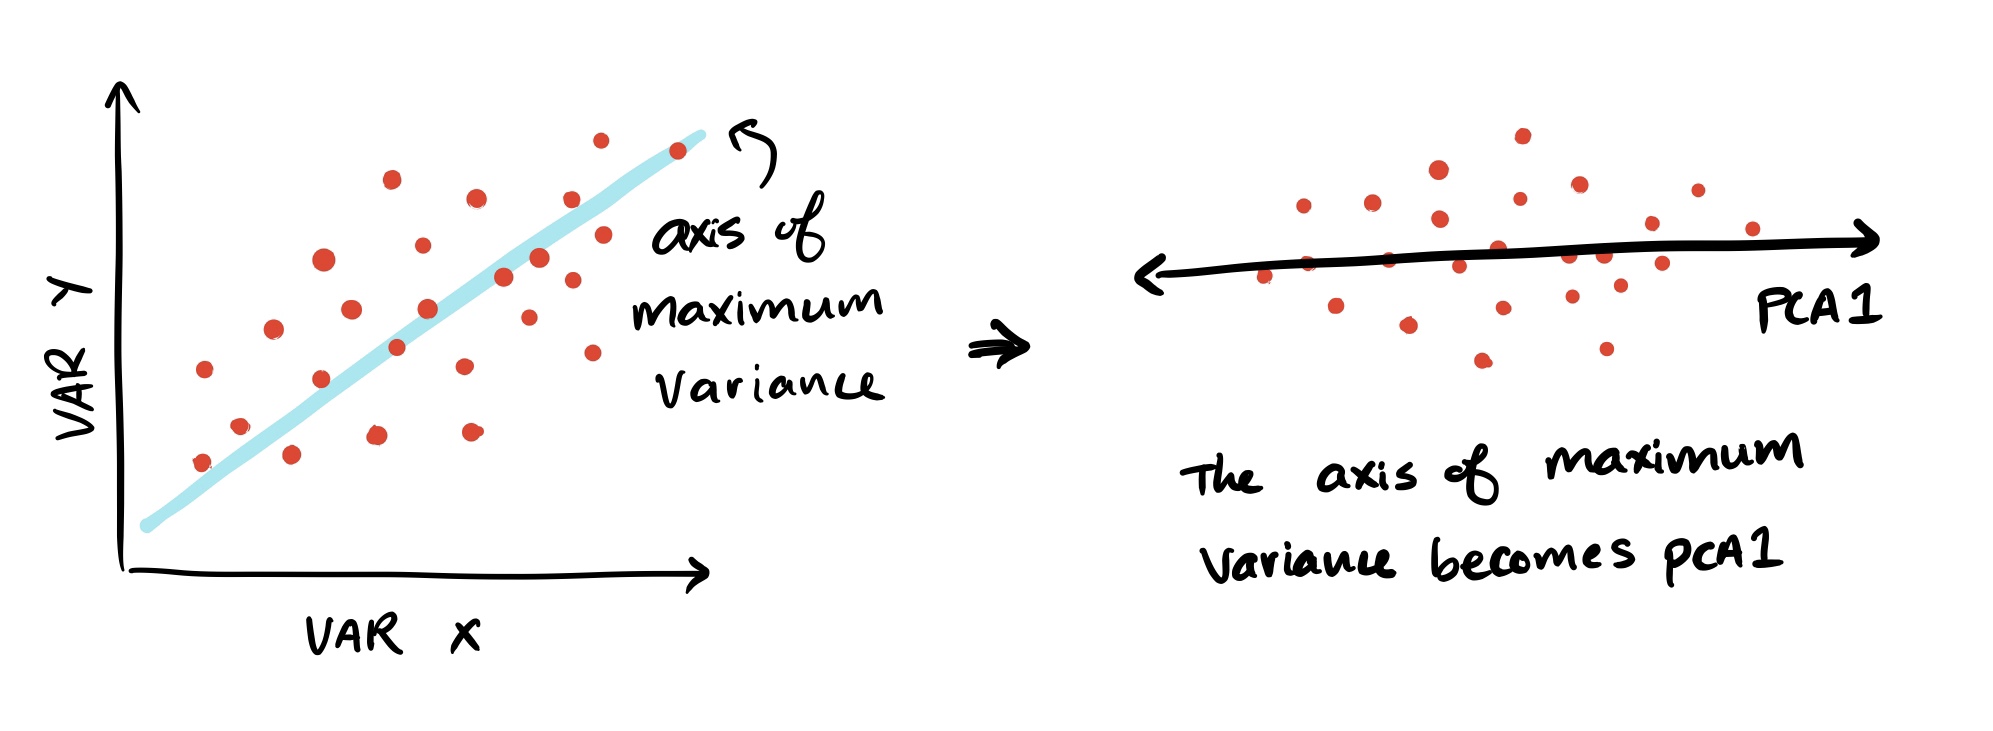 VAR Y
VAR X
axis of
maximum
variance
PCA1
The axis of maximum
variance becomes PCA1